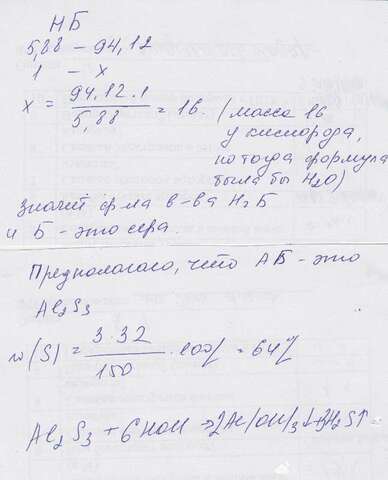 НБ
5,88 – 94,12
1 – x
x = 94,12·1 / 5,88 = 16. (масса 16
у кислорода,
но тогда формула
была бы H2O)
Значит ф-ла в-ва H2Б
и Б – это сера.
Предполагаю, что АБ – это
Al2S3
w(S) = 3·32 / 150 · 100% = 64%
Al2S3 + 6HOH → 2Al(OH)3↓ + 3H2S↑